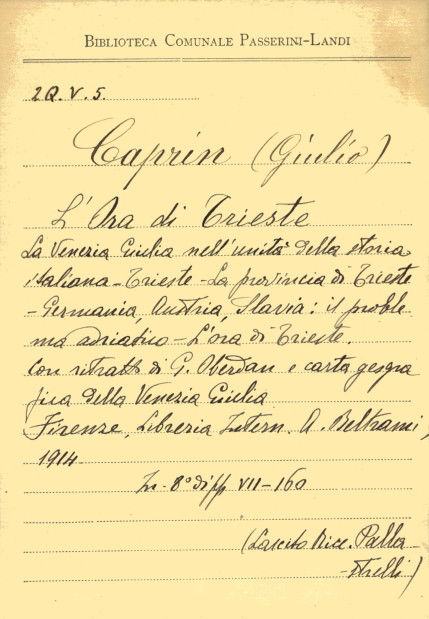 BIBLIOTECA COMUNALE PASSERINI-LANDI
2Q.V.5.
Caprin (Giulio)
L'Ora di Trieste
La Venezia Giulia nell'unità della storia
italiana - Trieste - La provincia di Trieste
- Germania, Austria, Slavia: il proble
ma adriatico - L'ora di Trieste.
Con ritratti di G. Oberdan e carta geogra
fica della Venezia Giulia
Firenze, Libreria Intern. A. Beltrami,
1914
In-8° di pp VII-160
(Lascito Bice. Palla
-strelli)